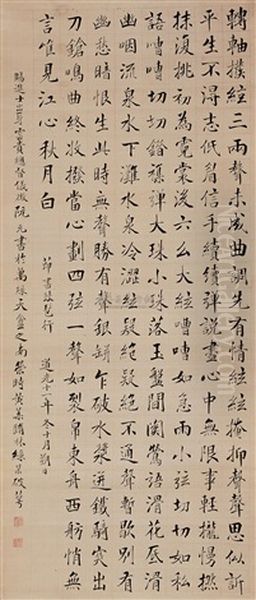 轉軸撥絃三兩聲未成曲調先有情絃絃掩抑聲聲思似訴
平生不得志低眉信手續續彈說盡心中無限事輕攏慢撚
抹復挑初為霓裳後六么大絃嘈嘈如急雨小弦切切如私
語嘈嘈切切錯襍彈大珠小珠落玉盤間關鶯語滑花底滑
幽咽流泉水下灘水泉冷澀絃疑絕疑絕不通聲暫歇別有
幽愁暗恨生此時無聲勝有聲銀缾乍破水漿迸鐵騎突出
刀鎗鳴曲終收撥當心劃四弦一聲如裂帛東舟西舫悄無
言惟見江心秋月白
節書琵琶行 道光十一年冬十月朔日
賜進士出身雲貴總督儀徵阮元書於萬珠天盦之南榮時黃葉林綠破萼